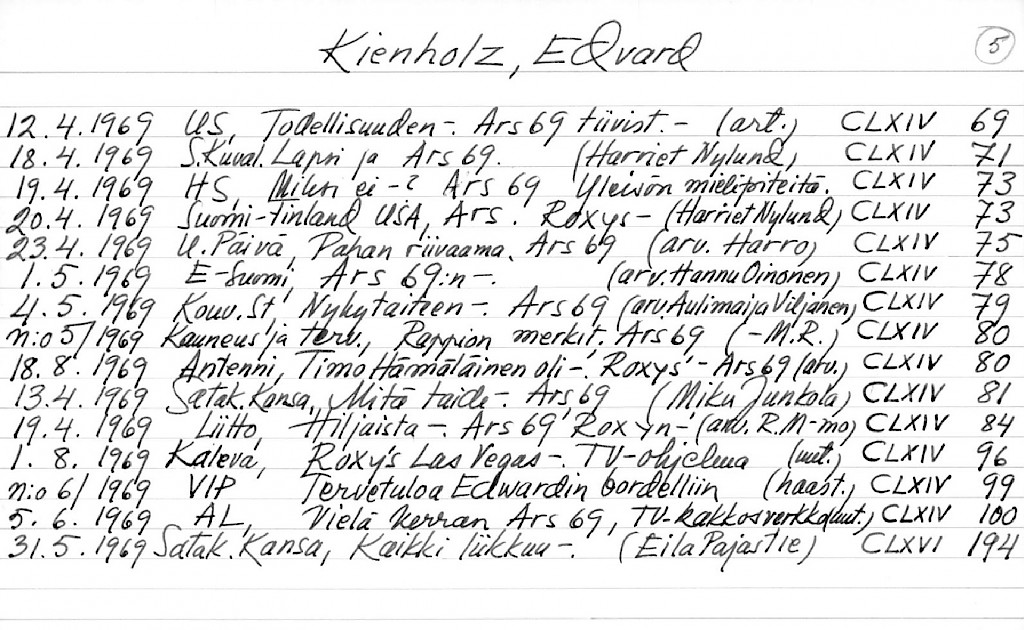 Kienholz, Edvard 5
12.4.1969 US, Todellisuuden -. Ars 69 tiivist. - (art.) CLXIV 69
18.4.1969 S.Kuval. Lapsi ja Ars 69. (Harriet Nylund) CLXIV 71
19.4.1969 HS, Miksi ei -? Ars 69 Yleisön mielipiteitä. CLXIV 73
20.4.1969 Suomi-Finland USA, Ars. Roxys - (Harriet Nylund) CLXIV 73
23.4.1969 U.Päivä, Pahan riivaama. Ars 69 (arv. Harro) CLXIV 75
1.5.1969 E-Suomi, Ars 69:n -. (arv. Hannu Oinonen) CLXIV 78
4.5.1969 Kouv.St, Nykytaiteen -. Ars 69 (arv Aulimaija Viljanen) CLXIV 79
n:o 5/1969 Kauneus ja terv., Rappion merkit. Ars 69 (-M.R.) CLXIV 80
18.8.1969 Antenni, Timo Hämäläinen oli -. Roxys - Ars 69 (arv.) CLXIV 80
13.4.1969 Satak.Kansa, Mitä taide -. Ars 69 (Miku Junkola) CLXIV 81
19.4.1969 Liitto, Hiljaista -. Ars 69 Roxyn - (arv. R.M-mo) CLXIV 84
1.8.1969 Kaleva, Roxy's Las Vegas -. TV-ohjelma (uut.) CLXIV 96
n:o 6/1969 VIP Tervetuloa Edwardin bordelliin (haast.) CLXIV 99
5.6.1969 AL, Vielä kerran Ars 69, TV-kakkosverkko (uut.) CLXIV 100
31.5.1969 Satak.Kansa, Kaikki liikkuu -. (Eila Pajastie) CLXVI 194